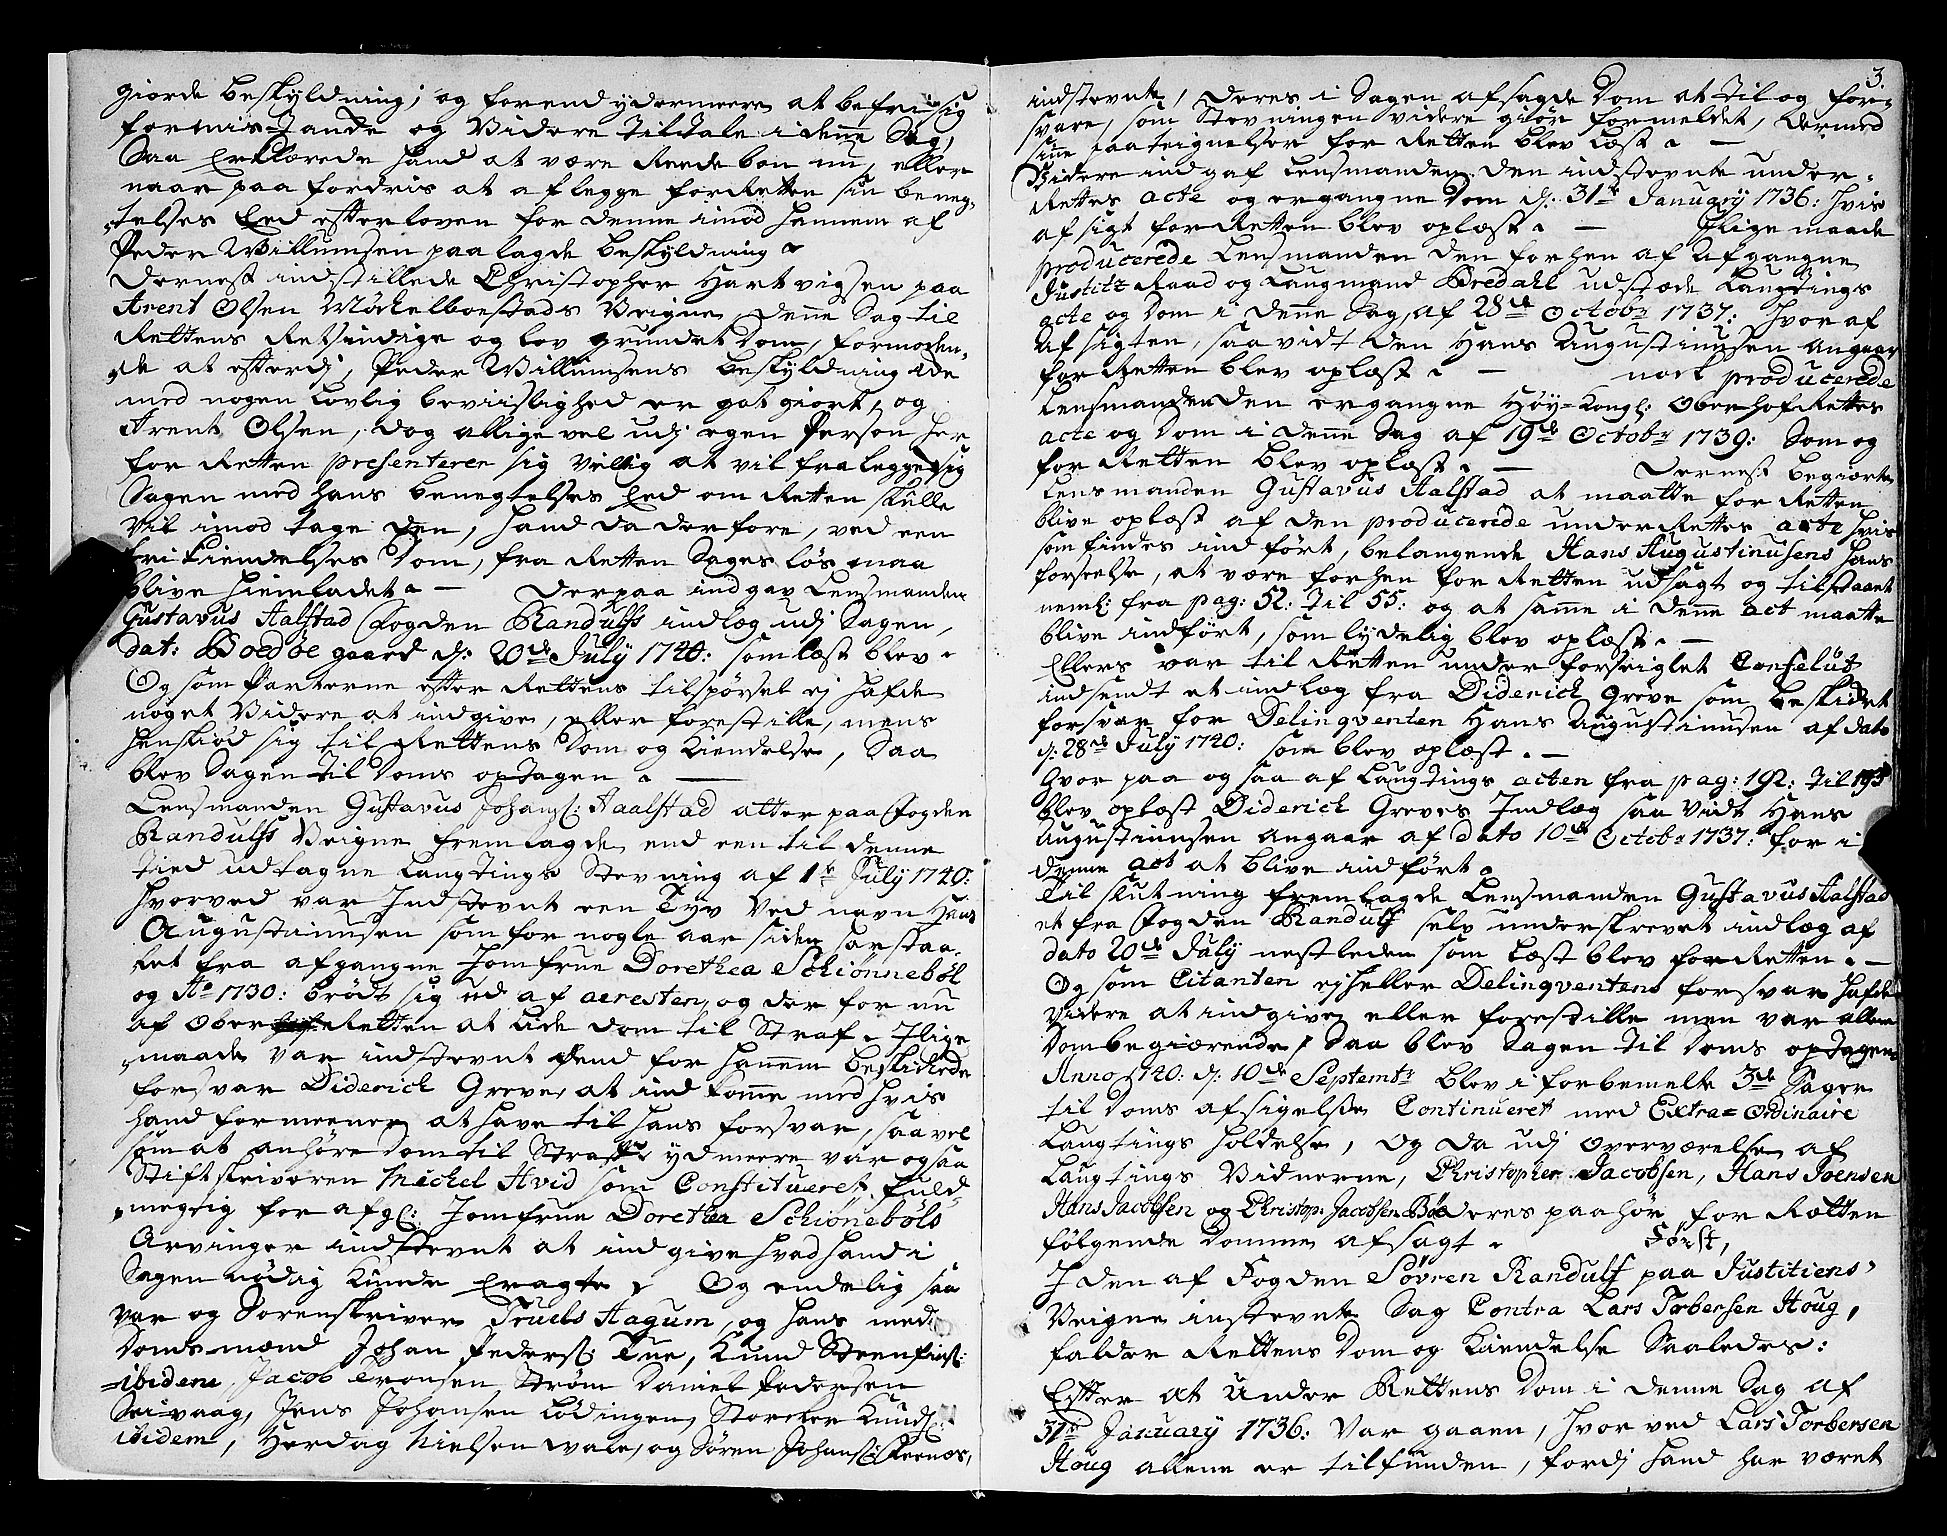 giorde beskyldning; og forend ydermeere at befrie sig
for mis-Tancke og Videre tiltale i denne Sag,
Saa erklærede hand at være Reede bon nu, eller
naar paa fordris at aflegge for Retten sin beneg-
telses Eed efter loven for denne imod hannem af
Peder Willumsen paalagde beskyldning
Dernest indstillede Christopher Hartvigsen paa
Arent Olsen Mickelboestads Veigne, denne Sag til
Rettens Retsindige og lov grundet Dom, formoden-
de at efterdj, Peder Willumsens beskyldning icke
med nogen Lovlig beviislighed er got giort, og
Arent Olsen, dog allige vel udj egen Person her
for Retten presenterer sig villig at vil fralegge sig
Sagen med hans benegtelses Eed om Retten skulle
Vil imod tage den, hand da derfore, ved een
frikiendelses Dom, fra Retten Sages løs maa
blive hiemladet. — Derpaa indgav Lensmanden
Gustavus Aalstad Fogden Randulfs indlæg udj Sagen,
dat: Boedøe gaard d: 20de July 1740: som læst blev.
Og som Parterne efter Rettens tilspørsel ej hafde
noget Videre at indgive, eller forestille, mens
henskiød sig til Rettens Dom og Kiendelse, Saa
blev Sagen til Doms optagen. —
Lensmanden Gustavus Johans: Aaalstad atter paa Fogden
Randulfs Veigne fremlagde end een til denne
tied udtagne Laugtings Stevning af 1te July 1740:
hvorved var Indstevnt een Tyv Ved navn Hans
Augustinusen som for nogle aar siden har staa-
let fra afgangne Jomfrue Dorethea Schiønnebøl
og Ao 1730: brødt sig ud af aeresten, og der for nu
af Ober Retten at Lide dom til Straf. Jlige
maade var indstevnt dend for hannem beskickede
forsvar Diderich Greve, at ind komme med hvis
hand formeener at have til hans forsvar, saa vel
som at anhøre Dom til Straf ydmeere var og saa
Stiftskriveren Michel Hvid som Constitueret fuld-
megtig for afg: Jomfrue Dorethea Schiønebøls
Arvinger indstevnt at indgive hvad hand i
Sagen nødig kunde Eragte, Og endelig saa
var og Sorenskriver Truels Hagum, og hans med
Domsmænd Johan Peders: Tue, Knud Steenfins:
ibidem, Jacob Tronsen Strøm Daniel Pedersen
Seivaag, Jens Johansen Lødingen, Storcker Knuds:
ibidem, Herdag Nielsen Vale, og Søren Johans: Steenæs,
3.
indstevnte, Deres i Sagen afsagde Dom at til og for-
svare, som Stevningen videre giør formeldet, Dermed
sine paateignelser for Retten blev læst. —
Videre indgaf Lensmanden, den indstevnte under-
Rettes acte og ergangne Dom d: 31te January 1736: hvis
afsigt for Retten blev oplæst. — Jlige maade
producerede Lensmanden den forhen af Afgangne
Justitz Raad og Laugmand Bredahl udstæde Laugtings
acte og Dom i denne Sag, af 28de Octobr 1737: Hvor af
afsigten, saavidt den Hans Augustinusen angaar
for Retten blev oplæst. — nock producerede
Lensmanden den ergangne Høy-Kongl: Oberhof Rettes
acte og Dom i denne Sag af 19de Octobr 1739: Som og
for Retten blev oplæst. — Dernest begiærte
Lensmanden Gustavus Aalstad at maatte for Retten
blive oplæst af den producerede underRettes acte hvis
som findes ind ført, belangende Hans Augustinusens hans
forseelse, at være forhen for Retten udsagt og tilstaaet
neml: fra pag: 52: til 55: og at samme i denne act maatte
blive indført, som lydelig blev oplæst. —
Ellers var til Retten under forseiglet Conselut
indsendt et indlæg fra Diderich Greve som beskicket
forsvar for Delinqventen Hans Augustinusen af dato
d: 28de July 1740: som blev oplæst. —
Hvor paa og saa af Laugtings acten fra pag: 192: til 195
blev oplæst Diderich Greves Indlæg saa vidt Hans
Augustinusen angaar af dato 10de Octobr 1737: for i
denne act at blive indført.
Til slutning fremlagde Lensmanden Gustavus Aalstad
et fra Fogden Randulf selv underskrevet indlæg af
dato 20de July nestleden som Læst blev for Retten. —
Og som Citanten ejheller Delinqventens forsvar hafde
videre at indgive eller forestille men var allene
Dom begiærende, Saa blev Sagen til Doms optagen
Anno 1740: d: 10de Septembr blev i forbemelte 3de Sager
til Doms afsigelse Continueret med Extra-Ordinaire
Laugtings holdelse, Og da udj Overværelse af
Laugtings Vidnerne, Christopher Jacobsen, Hans Joensen
Hans Jacobsen og Christoph: Jacobsen Bøe Deres paahør for Retten
følgende Domme afsagt. Først,
I den af Fogden Søvren Randulf paa Justitiens
Veigne instevnte Sag Contra Lars Torbersen Houg,
falder Rettens Dom og Kiendelse Saaledes:
Efter at Under Rettens Dom i denne Sag af
31te January 1736: Var gaaen, hvor ved Lars Torbersen
Houg allene er tilfunden, fordj hand har været